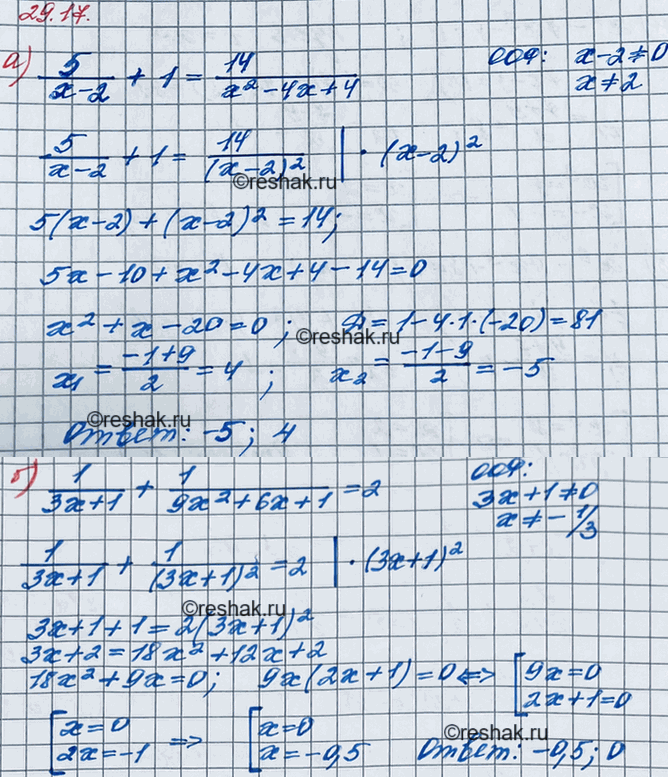 29.17.
а) 5/(x-2) + 1 = 14/(x²-4x+4) ООФ: x-2≠0
x≠2
5/(x-2) + 1 = 14/(x-2)² | · (x-2)²
©reshak.ru
5(x-2)+(x-2)²=14;
5x-10+x²-4x+4-14=0
x²+x-20=0; Д=1-4·1·(-20)=81
©reshak.ru
x₁ = (-1+9)/2 = 4; x₂ = (-1-9)/2 = -5
©reshak.ru
Ответ: -5; 4
б) 1/(3x+1) + 1/(9x²+6x+1) = 2 ООФ:
3x+1≠0
x≠-1/3
1/(3x+1) + 1/(3x+1)² = 2 | · (3x+1)²
©reshak.ru
3x+1+1=2(3x+1)²
3x+2=18x²+12x+2
18x²+9x=0; 9x(2x+1)=0 <=> [9x=0
2x+1=0
[x=0 => [x=0
2x=-1 x=-0,5 Ответ: -0,5; 0
©reshak.ru